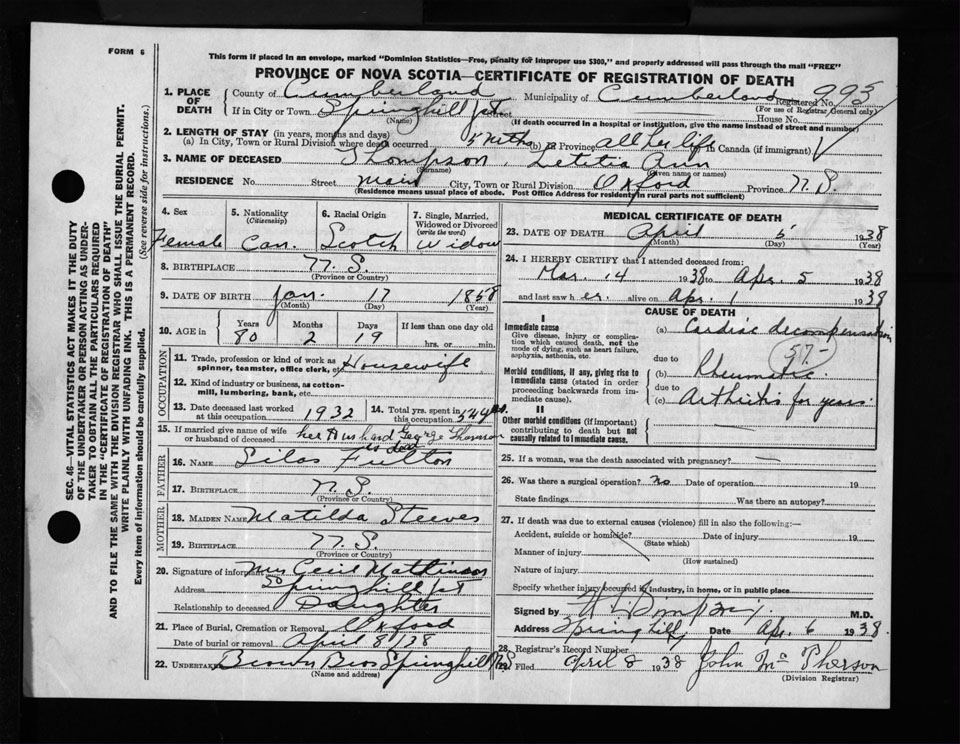 FORM 6
This form if placed in an envelope, marked "Dominion Statistics—Free, penalty for improper use $300," and properly addressed will pass through the mail "FREE"
PROVINCE OF NOVA SCOTIA—CERTIFICATE OF REGISTRATION OF DEATH
995
1. PLACE OF DEATH
County of Cumberland Municipality of Cumberland Registered No.
(For use of Registrar General only)
If in City or Town Springhill Jct Street House No.
(Name) (If death occurred in a hospital or institution, give the name instead of street and number)
2. LENGTH OF STAY (in years, months and days)
(a) In City, Town or Rural Division where death occurred 5 mths (b) in Province all her life Canada (if immigrant)
3. NAME OF DECEASED Thompson, Letitia Ann
(Surname) (Given name or names)
RESIDENCE No. Street Main City, Town or Rural Division Oxford Province N.S.
(Residence means usual place of abode. Post Office Address for residents in rural parts not sufficient)
4. Sex
Female
5. Nationality
(Citizenship)
Can.
6. Racial Origin
Scotch
7. Single, Married, Widowed or Divorced
(write the word)
Widow
8. BIRTHPLACE N.S.
(Province or Country)
9. DATE OF BIRTH Jan. 17 1858
(Month) (Day) (Year)
10. AGE in
Years Months Days If less than one day old
80 2 19 hrs. or min.
OCCUPATION
11. Trade, profession or kind of work as spinner, teamster, office clerk, etc. Housewife
12. Kind of industry or business, as cotton-mill, lumbering, bank, etc.
13. Date deceased last worked at this occupation 1932
14. Total yrs. spent in this occupation 54 yrs.
15. If married give name of wife or husband of deceased her Husband George Thomson is dead
FATHER
16. NAME Silas Fulton
17. BIRTHPLACE N.S.
(Province or Country)
MOTHER
18. MAIDEN NAME Matilda Steeves
19. BIRTHPLACE N.S.
(Province or Country)
20. Signature of informant Mrs Cecil Mattinson
Address Springhill Jct
Relationship to deceased Daughter
21. Place of Burial, Cremation or Removal Oxford
Date of burial or removal April 8/38
22. Undertaker Brown Bros Springhill N.S.
(Name and address)
MEDICAL CERTIFICATE OF DEATH
23. DATE OF DEATH April 5 1938
(Month) (Day) (Year)
24. I HEREBY CERTIFY that I attended deceased from:
Mar. 14 1938 to Apr. 5 1938
and last saw her alive on Apr. 1 1938
CAUSE OF DEATH
I
Immediate cause
Give disease, injury or complication which caused death, not the mode of dying, such as heart failure, asphyxia, asthenia, etc.
(a) Cardiac decompensation
57-
due to
Morbid conditions, if any, giving rise to immediate cause (stated in order proceeding backwards from immediate cause).
(b) Rheumatic
due to
(c) Arthritis for years.
II
Other morbid conditions (if important) contributing to death but not causally related to immediate cause.
25. If a woman, was the death associated with pregnancy? —
26. Was there a surgical operation? no Date of operation 19
State findings Was there an autopsy?
27. If death was due to external causes (violence) fill in also the following:—
Accident, suicide or homicide? Date of injury 19
(State which)
Manner of injury
(How sustained)
Nature of injury
Specify whether injury occurred in industry, in home, or in public place
Signed by M.D.
Address Springhill Date Apr. 6 1938.
28. Registrar's Record Number
Filed April 8 1938 John McPherson
(Division Registrar)
SEC. 46—VITAL STATISTICS ACT MAKES IT THE DUTY
OF THE UNDERTAKER OR PERSON ACTING AS UNDER-
TAKER TO OBTAIN ALL THE PARTICULARS REQUIRED
IN THE "CERTIFICATE OF REGISTRATION OF DEATH"
AND TO FILE THE SAME WITH THE DIVISION REGISTRAR WHO SHALL ISSUE THE BURIAL PERMIT.
WRITE PLAINLY WITH UNFADING INK. THIS IS A PERMANENT RECORD.
Every item of information should be carefully supplied. (See reverse side for instructions.)